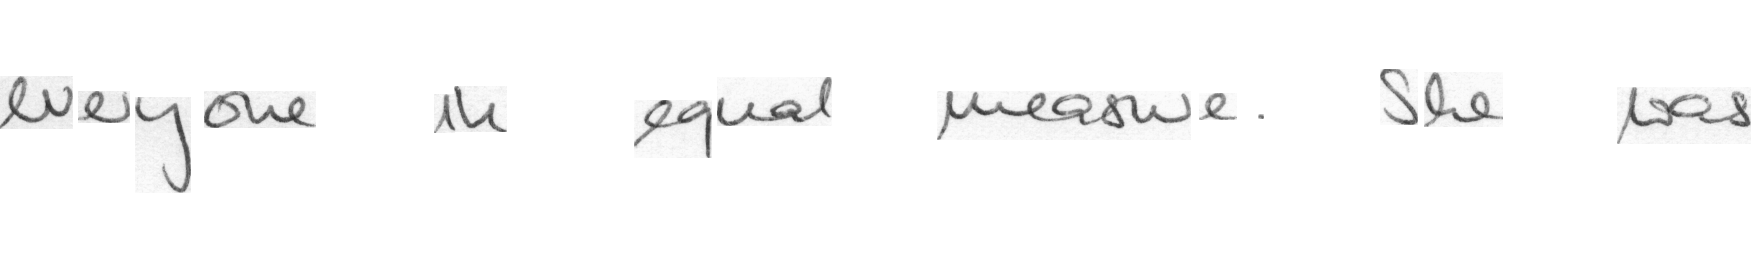 everyone in equal measure. She was